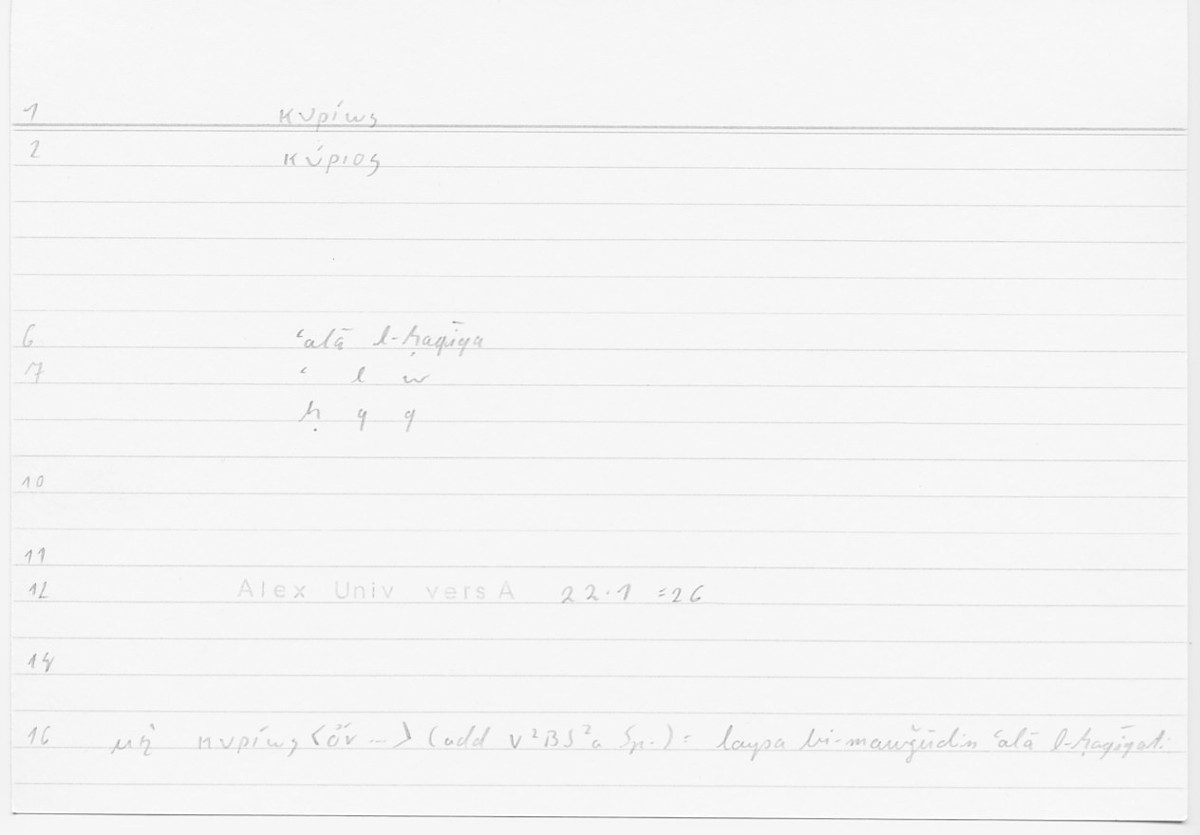 1 κυρίως
2 κύριος
6 ʿalā l-ḥaqīqa
7 ʿ l w
ḥ q q
10
11
12 Alex Univ vers A 22.1 =26
14
16 μὴ κυρίως <ὄν ...> (add V²BS²a Sp.) = laysa bi-mawǧūdin ʿalā l-ḥaqīqati